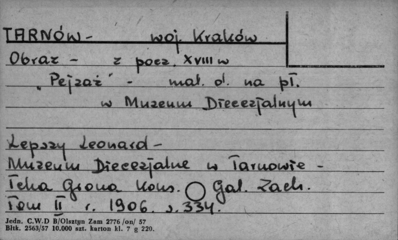 TARNÓW - woj. Kraków
Obraz - z pocz. XVIII w
"Pejzaż" - mal. ol. na pł.
w Muzeum Diecezjalnym
Łepszy Leonard -
Muzeum Diecezjalne w Tarnowie -
Teka Grona Kons. Gal. Zach.
Tom II r. 1906. s. 334.
Jedn. C.W.D B/Olsztyn Zam 2776/on/57
Bltk. 2563/57 10.000 szt. karton kl. 7 g 220.